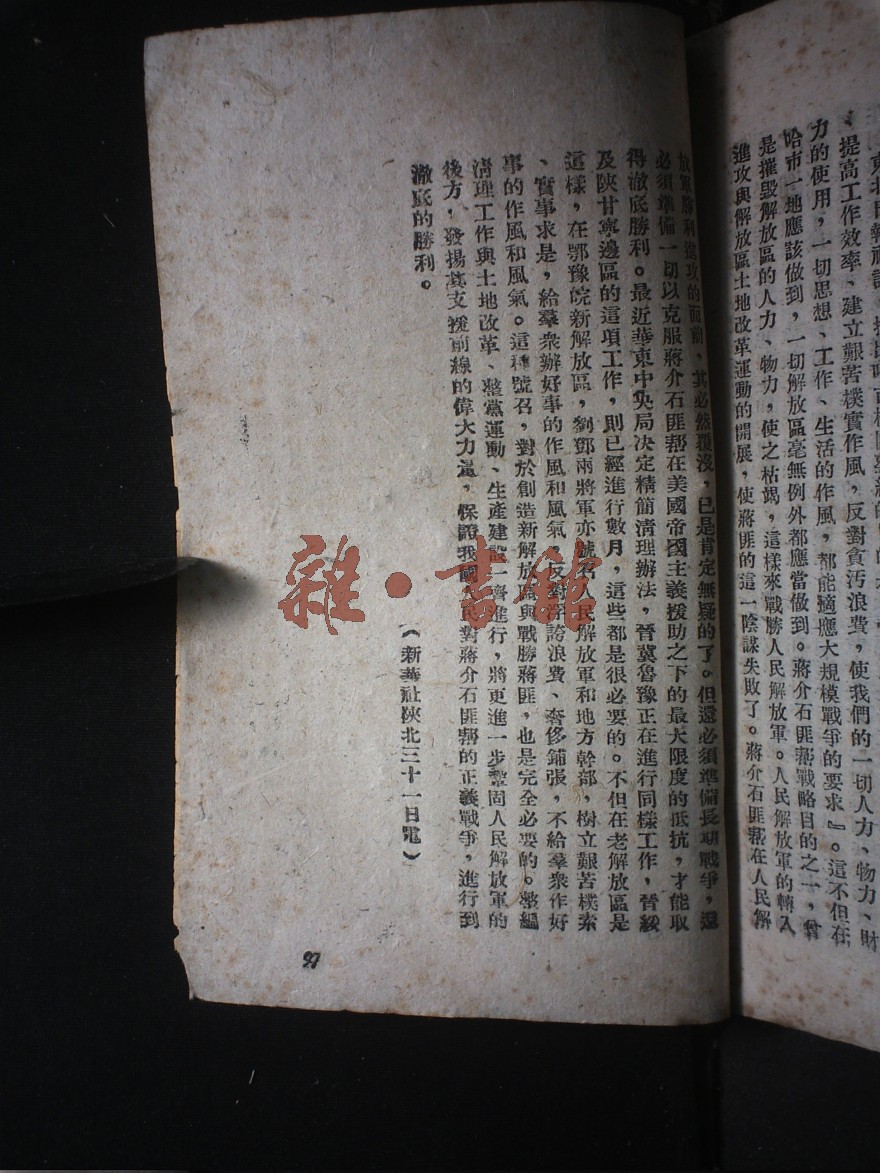 、提高工作效率、建立艱苦樸實作風，反對貪汚浪費，使我們的一切人力、物力、財
力的使用，一切思想、工作、生活的作風，都能適應大規模戰爭的要求』。這不但在
哈市一地應該做到，一切解放區毫無例外都應當做到。蔣介石匪幫戰略目的之一，曾
是摧毀解放區的人力、物力，使之枯竭，這樣來戰勝人民解放軍。人民解放軍的轉入
進攻與解放區土地改革運動的開展，使蔣匪的這一陰謀失敗了。蔣介石匪幫在人民解
放軍勝利進攻的面前，其必然覆沒，已是肯定無疑的了。但還必須準備長期戰爭，還
必須準備一切以克服蔣介石匪幫在美國帝國主義援助之下的最大限度的抵抗，才能取
得澈底勝利。最近華東中央局决定精簡清理辦法，晉冀魯豫正在進行同樣工作，晉綏
及陝甘寧邊區的這項工作，則已經進行數月，這些都是很必要的。不但在老解放區是
這樣，在鄂豫皖新解放區，劉鄧兩將軍亦號召人民解放軍和地方幹部，樹立艱苦樸素
、實事求是，給羣衆辦好事的作風和風氣，反對浮誇浪費、奢侈鋪張，不給羣衆作好
事的作風和風氣。這種號召，對於創造新解放區與戰勝蔣匪，也是完全必要的。整編
淸理工作與土地改革、整黨運動、生產建設一齊進行，將更進一步鞏固人民解放軍的
後方，發揚其支援前線的偉大力量，保證我國人民對蔣介石匪幫的正義戰爭，進行到
澈底的勝利。
（新華社陝北三十一日電）
97
雜·書館